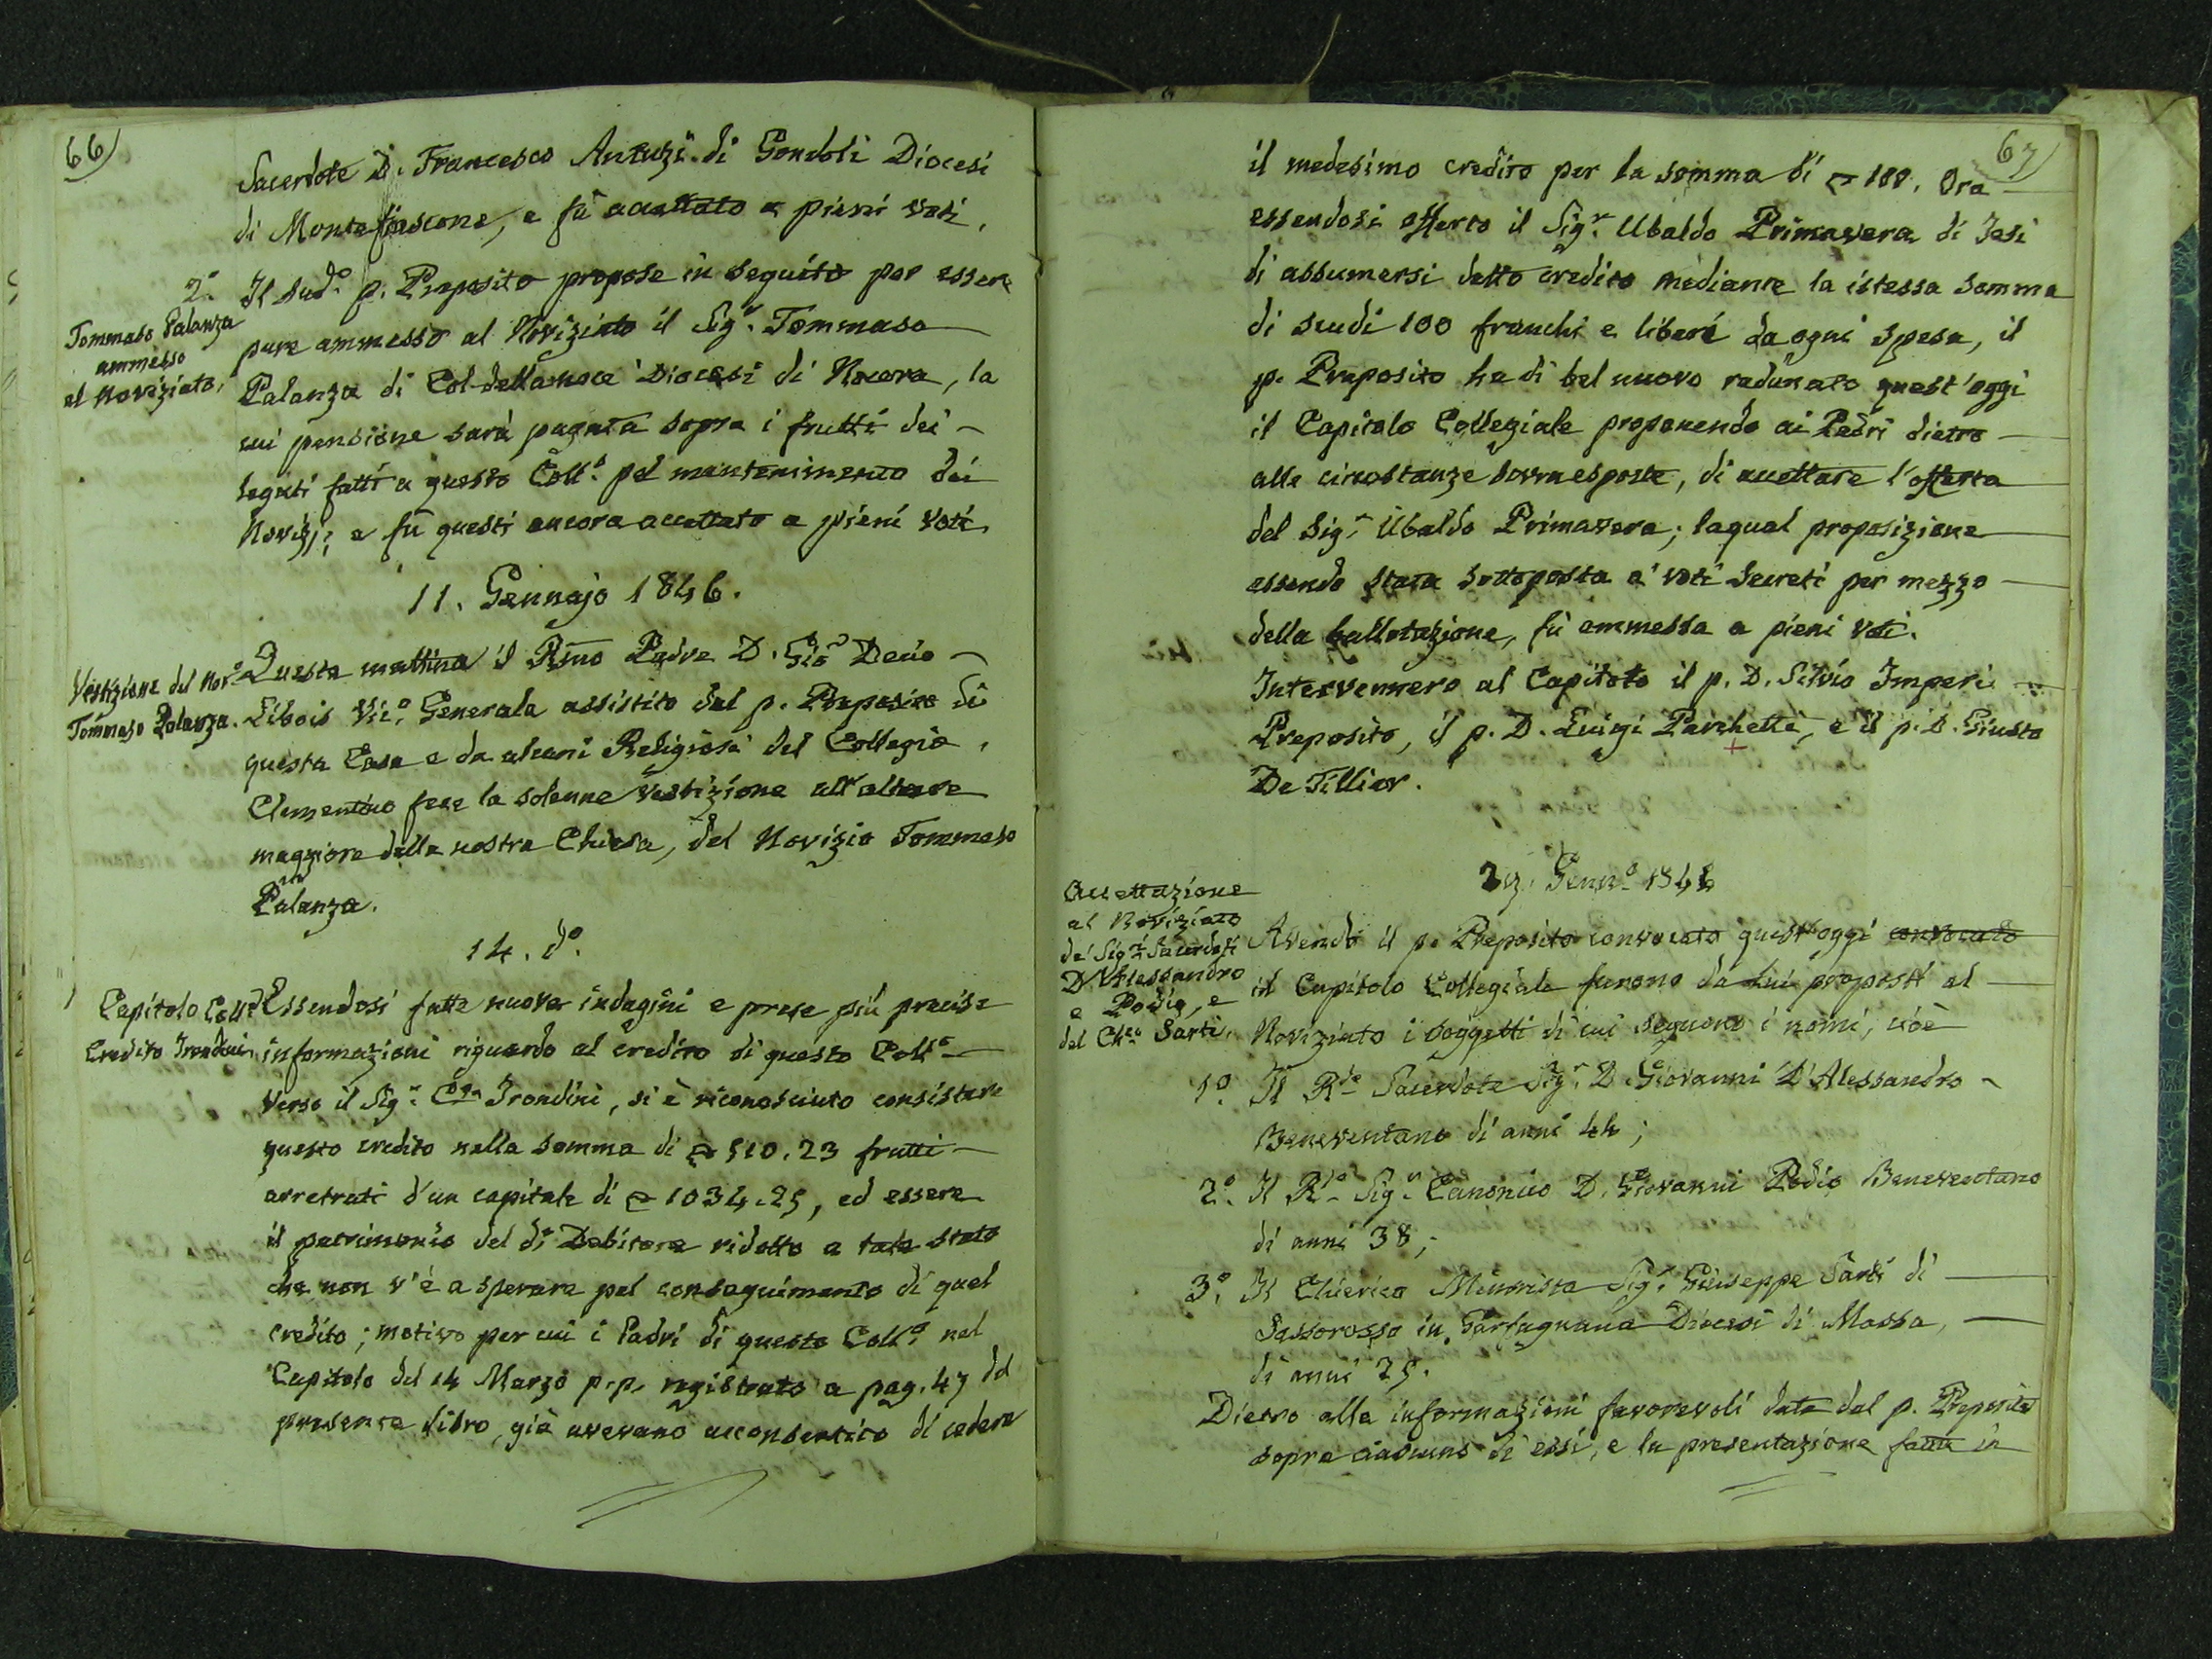 66)
Sacerdote D. Francesco Antuzi di Gondoli Diocesi
di Montefiascone, e fù accettato a pieni voti.
2.° Il sud.° p. Preposito propose in seguito per essere
Tommaso Palanza
ammesso
al Noviziato.
pure ammesso al Noviziato il Sig.r Tommaso
Palanza di Col-della noce Diocesi di Nocera, la
cui pensione sarà pagata sopra i frutti dei
legati fatti a questo Coll.° pel mantenimento dei
Novizj; e fù questi ancora accettato a pieni voti.
11. Gennajo 1846.
Vestizione del Nov.°
Tommaso Palanza.
Questa mattina il Rmo Padre D. Gio Decio
Libois Vic.° Generale assistito dal p. Preposito di
questa Casa e da alcuni Religiosi del Collegio
Clementino fece la solenne vestizione all'altare
maggiore della nostra Chiesa, del Novizio Tommaso
Palanza.
14. d.°
Capitolo Coll.e
Credito Irondini
Essendosi fatte nuove indagini e prese più precise
informazioni riguardo al credito di questo Coll.°
verso il Sig.r Irondini, si è riconosciuto consistere
questo credito nella somma di 510.23 frutti
arretrati d'un capitale di 1034.25, ed essere
il patrimonio del d.° Debitore ridotto a tale stato
che non v'è a sperare pel conseguimento di quel
credito; motivo per cui i Padri di questo Coll.° nel
Capitolo del 14 Marzo p.p. registrato a pag. 47 del
presente libro, già avevano acconsentito di cedere
67)
il medesimo credito per la somma di 100. Ora
essendosi offerto il Sig.r Ubaldo Primavera di Jesi
di assumersi detto credito mediante la istessa somma
di scudi 100 franchi e liberi da ogni spesa, il
p. Preposito ha di bel nuovo radunato quest'oggi
il Capitolo Collegiale proponendo ai Padri dietro
alle circostanze sovraesposte, di accettare l'offerta
del Sig.r Ubaldo Primavera; laqual proposizione
essendo stata sottoposta a' voti secreti per mezzo
della ballotazione, fù ammessa a pieni voti.
Intervennero al Capitolo il p. D. Silvio Imperi
Preposito, il p. D. Luigi Parchetti, e il p. D. Giusto
De Tillier.
27. Genn.° 1846
Accettazione
al Noviziato
de' Sig.ri Sacerdoti
D'Alessandro
e Podio, e
del Ch.co Sarti.
Avendo il p. Preposito convocato quest'oggi convocato
il Capitolo Collegiale furono da lui proposti al
Noviziato i soggetti di cui seguono i nomi, cioè
1.° Il R.do Sacerdote Sig.r D. Giovanni D'Alessandro
Beneventano di anni 44;
2.° Il R.do Sig.r Canonico D. Giovanni Podio Beneventano
di anni 38;
3.° Il Chierico Minorista Sig.r Giuseppe Sarti di
Sassorosso in Garfagnana Diocesi di Massa,
di anni 25.
Dietro alle informazioni favorevoli date dal p. Preposito
sopra ciascuno di essi, e la presentazione fatta in